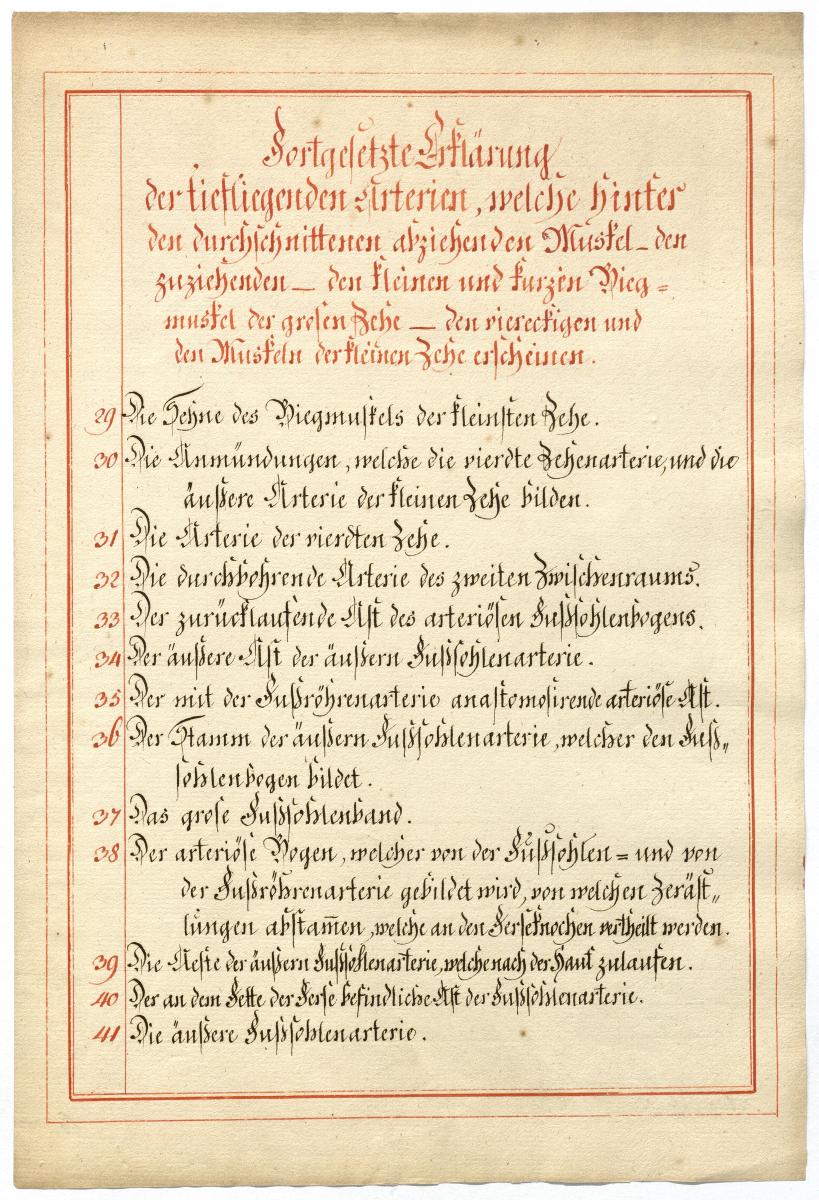 Fortgesetzte Erklärung
der tiefliegenden Arterien, welche hinter
den durchschnittenen abziehenden Muskel – den
zuziehenden – den kleinen und kurzen Bieg=
muskel der grosen Zehe – den viereckigen und
den Muskeln der kleinen Zehe erscheinen.
29 Die Sehne des Biegmuskels der kleinsten Zehe.
30 Die Anmündungen, welche die vierdte Zehenarterie, und die
äußere Arterie der kleinen Zehe bilden.
31 Die Arterie der vierdten Zehe.
32 Die durchbohrende Arterie des zweiten Zwischenraums.
33 Der zurücklaufende Ast des arteriösen Fußsohlenbogens.
34 Der äußere Ast der äußern Fußsohlenarterie.
35 Der mit der Fußröhrenarterie anastomosirende arteriöse Ast.
36 Der Stamm der äußern Fußsohlenarterie, welcher den Fuß„
sohlenbogen bildet.
37 Das grose Fußsohlenband.
38 Der arteriöse Bogen, welcher von der Fußsohlen = und von
der Fußröhrenarterie gebildet wird, von welchen Zeräst„
lungen abstam̄en, welche an den Ferseknochen vertheilt werden.
39 Die Aeste der äußern Fußsohlenarterie, welche nach der Haut zulaufen.
40 Der an dem Fette der Ferse befindliche Ast der Fußsohlenarterie.
41 Die äußere Fußsohlenarterie.